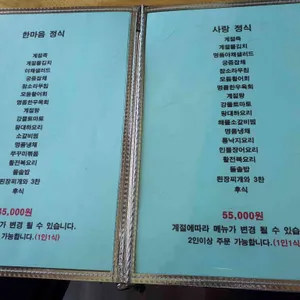 한마음 정식
계절죽
계절물김치
야채샐러드
궁중잡채
참소라무침
모듬활어회
명품한우육회
계절탕
강틀토마토
왕대하요리
소갈비찜
명품냉채
쭈꾸미볶음
활전복요리
돌솥밥
된장찌개와 3찬
후식
45,000원
메뉴가 변경 될 수 있습니다.
가능합니다.(1인1식)
사랑 정식
계절죽
계절물김치
명품야채샐러드
궁중잡채
참소라무침
모듬활어회
명품한우육회
계절탕
강틀토마토
왕대하요리
해물소갈비찜
명품냉채
통낙지요리
민물장어요리
활전복요리
돌솥밥
된장찌개와 3찬
후식
55,000원
계절에따라 메뉴가 변경 될 수 있습니다.
2인이상 주문 가능합니다.(1인1식)